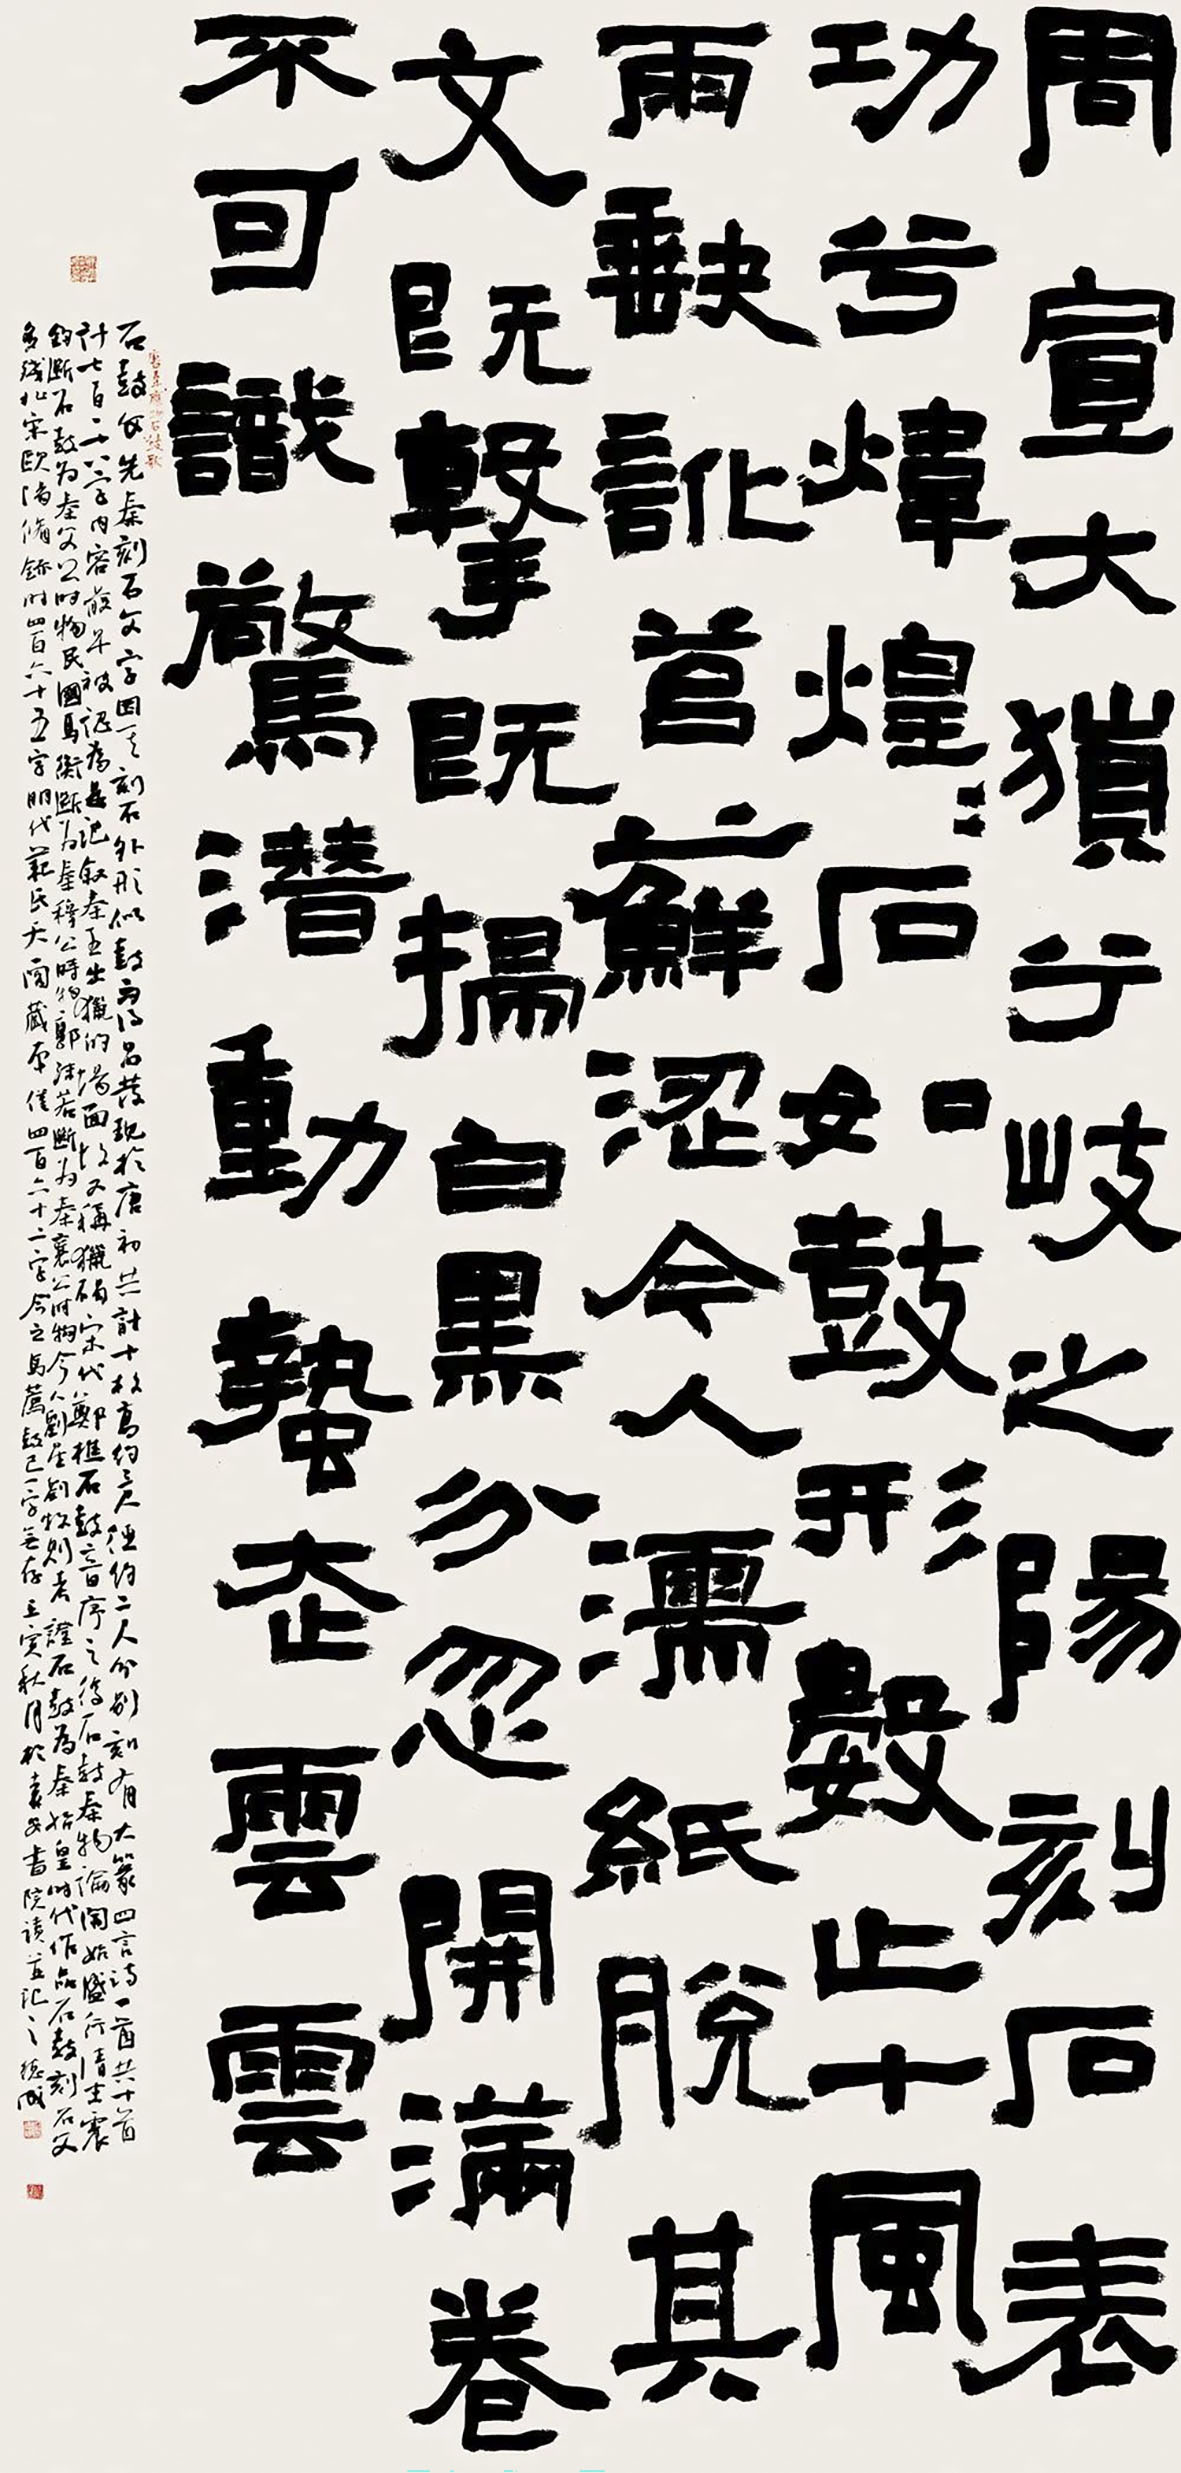 周宣大獵兮岐之陽刻石表
功兮煒煌煌石如鼓形數止十風
雨缺訛苔蘚澀今人濡紙脫其
文既擊既掃白黑分忽開滿卷
不可識驚潛動蟄走雲雲
唐韋應物石鼓歌
石鼓文先秦刻石文字因其刻石外形似鼓而得名發現於唐初共計十枚高約三尺徑約二尺分別刻有大篆四言詩一首共十首
計七百一十八字內容最早被認為是記敘秦王出獵的場面故又稱獵碣宋代鄭樵石鼓音序之後石鼓秦物論開始盛行清末震
鈞斷石鼓為秦文公時物民國馬衡斷為秦穆公時物郭沫若斷為秦襄公時物今人劉星劉牧則考證石鼓為秦始皇時代作品石鼓刻石文
多殘北宋歐陽脩錄時四百六十五字明代範氏天閣藏本僅四百六十二字今之馬薦鼓已一字無存壬寅秋月於書院讀並記之德成